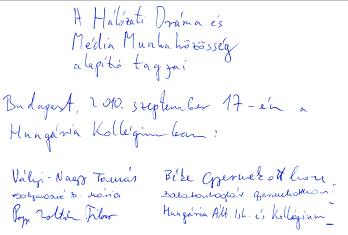 A Hálózati Dráma és
Média Munkaközösség
alapító tagjai
Budapest, 2010. szeptember 17-én a
Hungária Kollégiumban:
Vályi-Nagy Tamás Béke Gyermekotthon
B. Mária Balatonboglár Gyermekotthon
Papp Zoltán Tibor Hungária Ált. Isk. és Kollégium